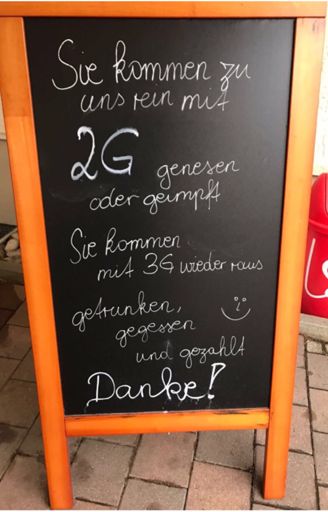 Sie kommen zu
uns rein mit
2G genesen
oder geimpft
Sie kommen
mit 3G wieder raus
getrunken,
gegessen
und gezahlt
Danke!